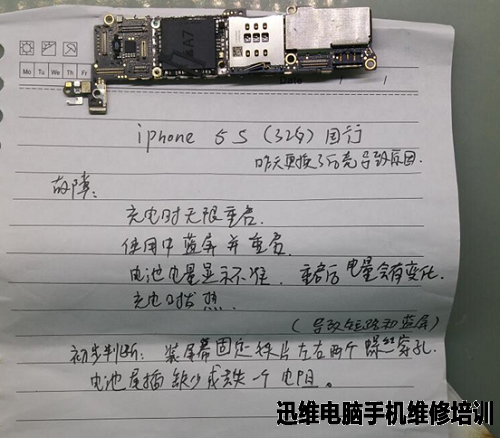 A7
Mo Tu We Th Fr
iphone 5S (32G) 国行
昨天更换了后壳导致原因.
故障:
充电时无限重启.
使用中蓝屏并重启.
电池电量显示不准. 重启后电量会有变化.
充电口发热.
(导致短路和蓝屏)
初步判断: 装屏幕固定铁片左右两个螺丝穿孔.
电池尾插缺少或丢失一个电阻。
迅维电脑手机维修培训